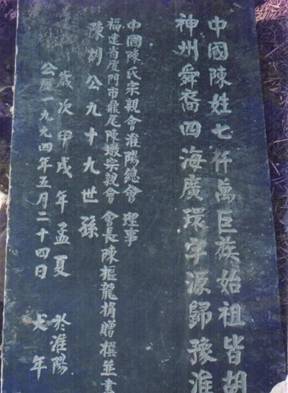 中國陳姓七仟萬巨族始祖皆胡
神州舜裔四海廣環宇源歸豫淮
中國陳氏宗親會淮陽總會 理事
福建省厦門市鼎尾陳墩宗親會 會長陳樞龍捐贈撰並書
陳剴公九十九世孫
歲次甲戌年孟夏 於淮陽
公歷一九九四年五月二十四日 犬年